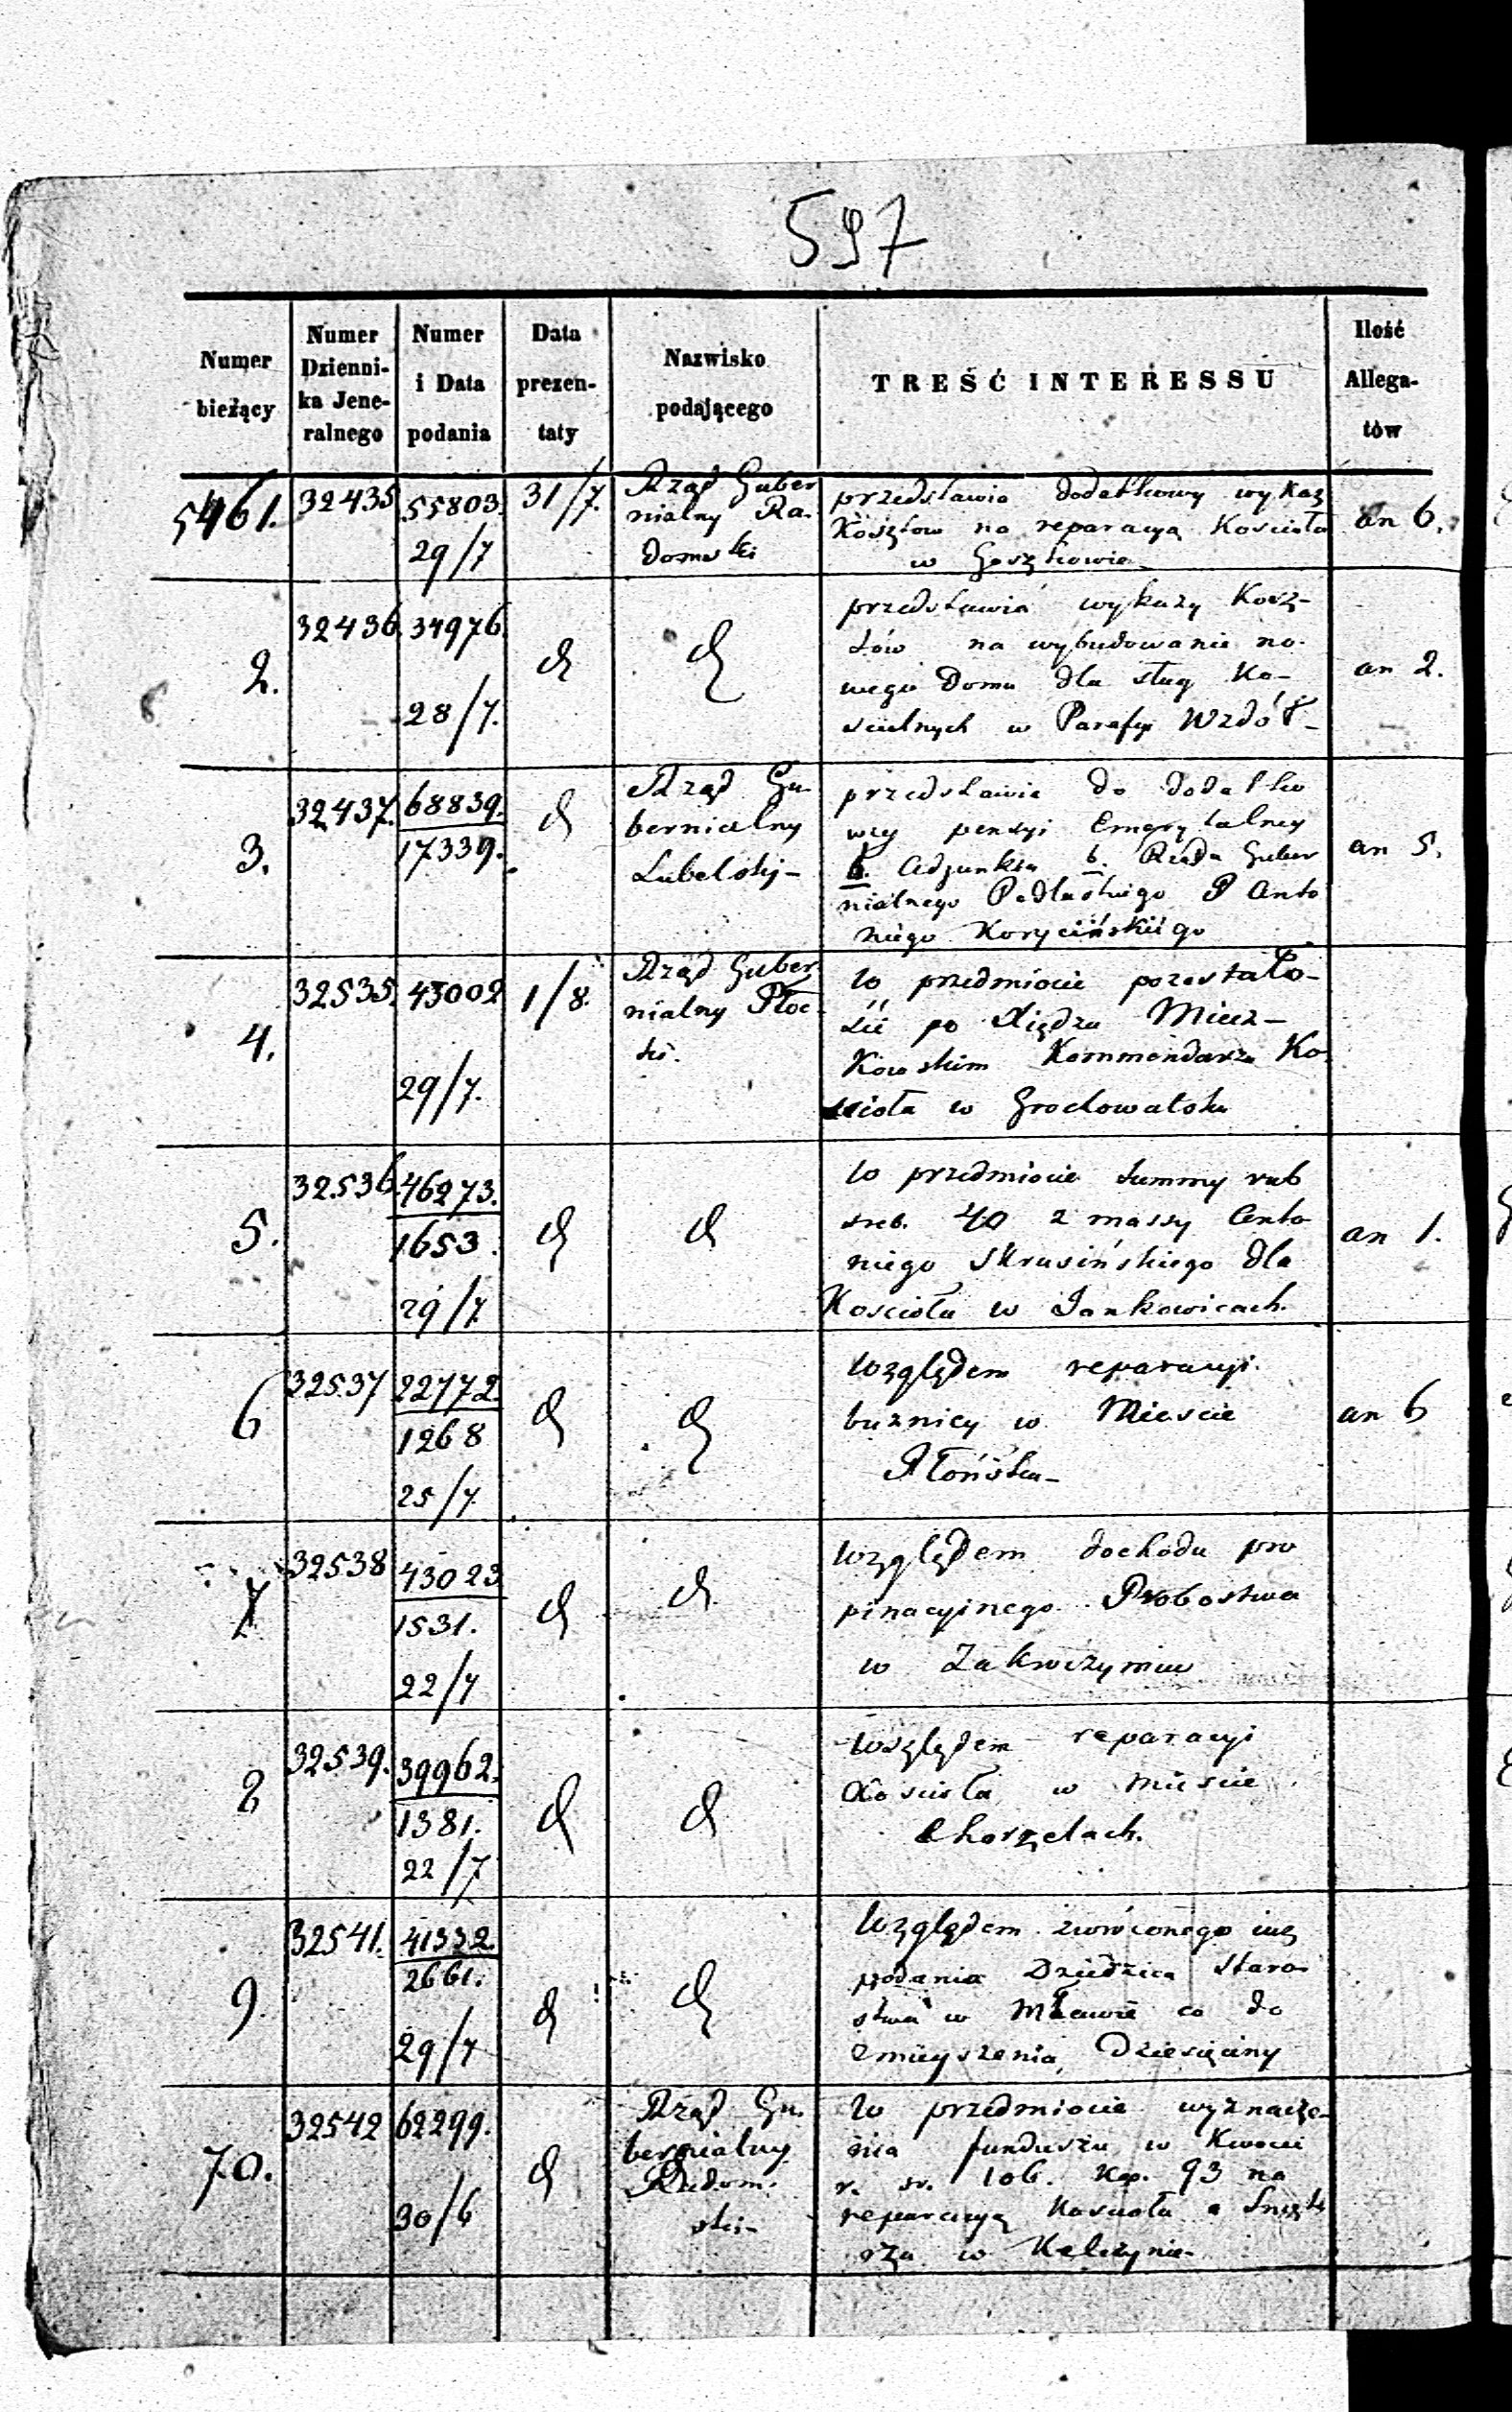 597
Numer bieżący
Numer Dzienni-ka Jene-ralnego
Numer i Data podania
Data prezen-taty
Nazwisko podającego
TREŚĆ INTERESSU
Ilość Allega-tów
5461. 32435 55803. 29/7 31/7.
Rząd Guber
nialny Ra-
domski
przedstawia dodatkowy wykaz
Kosztow na reparacyą Kościoła
w
an 6.
2. 32436. 34976. 28/7.
przedstawia wykazy Kosz-
tów na wybudowanie no-
wego Domu dla sług Ko-
scielnych w Parafyi Wzdół-
an 2.
3. 32437. 68839. 17339.
Rząd Gu-
bernialny
Lubelski-
przedstawia do dodatko
wey pensyi Emerytalney
b. Adjunkta b. Rządu Guber
nialnego Podlaskiego P Anto
niego Korycińskiego
an 5.
4. 32535. 43002 29/7. 1/8.
Rząd Guber
nialny Płoc-
ki.
w przedmiocie pozostało-
ści po Xiędzu Miecz-
kowskim Kommendarzu Ko-
scioła w
5. 32536. 46273. 1653. 29/7.
w przedmiocie summy rub
sreb. 40 z massy Anto
niego Skrusińskiego dla
Kościoła w Jankowicach.
an 1.
6 32537 22772. 1268 25/7
Względem reparacyi
buznicy w Mieście
Płońsku-
an 6
7 32538 43023 1531. 22/7
Względem dochodu pro
pinacyjnego Probostwa
w Zakroczymiu
8 32539. 39962. 1381. 22/7
Względem reparacyi
Kościoła w Mieście
Chorzelach.
9. 32541. 41332. 2661. 29/7
Względem zwróconego
podania Dziedzica Staro-
stwa w Mławie co do
zmieyszenia Dziesięciny
70. 32542 62299. 30/6
Rząd Gu.
bernialny
Radom-
ski-
w przedmiocie wyznacze-
nia funduszu w Kwocie
r. sr. 106. kop. 93 na
reparacyą Kościoła
w